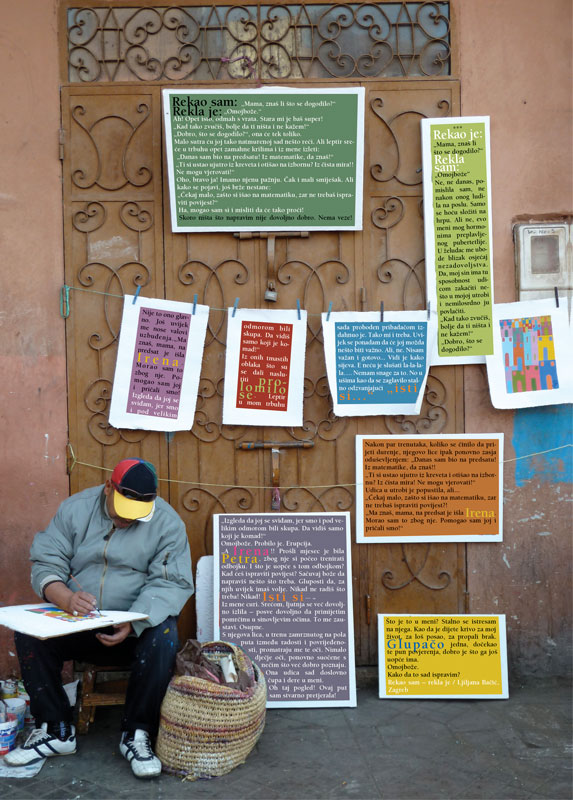 Rekao sam: „Mama, znaš li što se dogodilo?“
Rekla je: „Omojbože.“
Ah! Opet isto, odmah s vrata. Stara mi je baš super!
„Kad tako zvučiš, bolje da ti ništa i ne kažem!“
„Dobro, što se dogodilo?“, ona će tek toliko.
Malo sutra ću joj tako natmurenoj sad nešto reći. Ali leptir sre-
će u trbuhu opet zamahne krilima i iz mene izleti:
„Danas sam bio na predsatu! Iz matematike, da znaš!“
„Ti si ustao ujutro iz kreveta i otišao na izbornu! Iz čista mira!!
Ne mogu vjerovati!“
Oho, bravo ja! Imamo njenu pažnju. Čak i mali smiješak. Ali
kako se pojavi, još brže nestane:
„Čekaj malo, zašto si išao na matematiku, zar ne trebaš ispra-
viti povijest?“
Ha, mogao sam si i misliti da će tako proći!
Skoro ništa što napravim nije dovoljno dobro. Nema veze!
***
Rekao je:
„Mama, znaš li
što se dogodilo?“
Rekla
sam:
„Omojbože“
Ne, ne danas, po-
mislila sam, ne
nakon onog ludi-
la na poslu. Samo
se hoću složiti na
hrpu. Ali ne, evo
meni mog hormo-
nima preplavlje-
nog pubertetlije.
U želudac me ubo-
de blizak osjećaj
nezadovoljstva.
Da, moj sin ima tu
sposobnost udi-
com zakačiti ne-
što u mojoj utrobi
i nemilosrdno ja
povlačiti.
„Kad tako zvučiš,
bolje da ti ništa i
ne kažem!“
„Dobro, što se
dogodilo?“
Nije to ono glav-
no. Još uvijek
me nose valovi
uzbuđenja. „Ma
znaš, mama, na
predsat je išla
Irena
Morao sam to
zbog nje. Po-
mogao sam joj
i pričali smo!
Izgleda da joj se
sviđam, jer smo
i pod velikim
odmorom bili
skupa. Da vidiš
samo koji je ko-
mad!“
Iz onih tmastih
oblaka što su
se dali naslu-
titi pro-
lomilo
se. Leptir
u mom trbuhu
sada proboden pribadačom iz-
dahnuo je. Tako mi i treba. Uvi-
jek se ponadam da će joj možda
nešto biti važno. Ali, ne. Nisam
važan i gotovo... Vidi je kako
sijeva. E neću je slušati la-la-la-
la.... Nemam snage za to. No u
ušima kao da se zaglavilo stal-
no odzvanjajući „isti
si...., isti
Nakon par trenutaka, koliko se činilo da pri-
jeti durenje, njegovo lice ipak ponovno zasja
oduševljenjem: „Danas sam bio na predsatu!
Iz matematike, da znaš!!
„Ti si ustao ujutro iz kreveta i otišao na izbor-
nu? Iz čista mira! Ne mogu vjerovati!“
Udica u utrobi je popustila, ali...
„Čekaj malo, zašto si išao na matematiku, zar
ne trebaš ispraviti povijest?!
„Ma znaš, mama, na predsat je išla Irena
Morao sam to zbog nje. Pomogao sam joj i
pričali smo!“
„Izgleda da joj se sviđam, jer smo i pod ve-
likim odmorom bili skupa. Da vidiš samo
koji je komad!“
Omojbože. Probilo je. Erupcija.
„A Irena!! Prošli mjesec je bila
Petra, zbog nje si počeo trenirati
odbojku. I što je uopće s tom odbojkom?
Kad ćeš ispraviti povijest? Sačuvaj bože da
napraviš nešto što treba. Gluposti da, za
njih uvijek imaš volje. Nikad ne radiš što
treba! Nikad! Isti si...
Iz mene curi. Srećom, ljutnja se već dovolj-
no izlila – posve dovoljno da primijetim
pometnju u sinovljevim očima. To me zau-
stavi. Osupne.
S njegova lica, u trenu zamrznutog na pola
puta između radosti i povrijeđeno-
sti, promatraju me te oči. Nimalo
dječje oči, ponovno suočene s
nečim što već dobro poznaju.
Ona udica sad doslovno
čupa i dere u meni.
Oh taj pogled! Ovaj put
sam stvarno pretjerala!
Što je to u meni! Stalno se istresam
na njega. Kao da je dijete krivo za moj
život, za loš posao, za propali brak.
Glupačo jedna, dočekao
te pun povjerenja, dobro je što ga još
uopće ima.
Omojbože.
Kako da to sad ispravim?
Rekao sam – rekla je / Ljiljana Bačić,
Zagreb